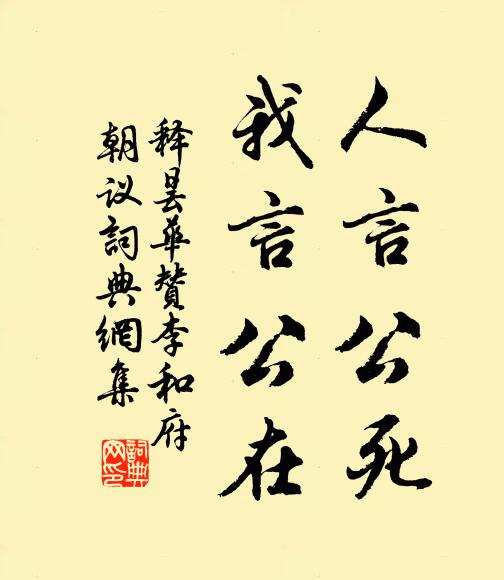 人言公死
我言公在
释昙华赞李和府
朝议詞典網集
詞典网印